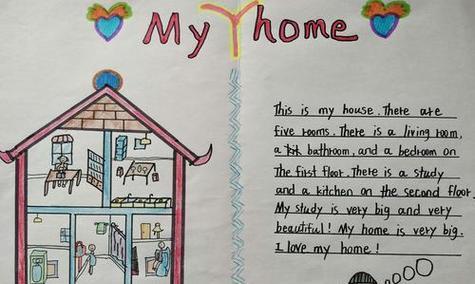 My home
This is my house. There are
five rooms. There is a living room,
a bathroom, and a bedroom on
The first floor. There is a study
and a kitchen on the second floor.
My study is very big and very
beautiful! My home is very big.
I love my home!